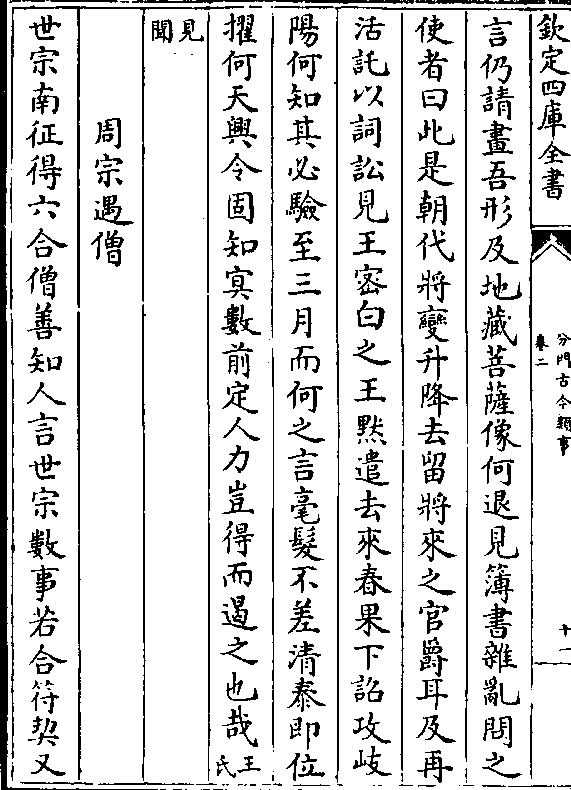 欽定四庫全書
分門古今類事
卷二
十一
言仍請畫吾形及地藏菩薩像何退見簿書雜亂問之
使者曰此是朝代將變升降去留將來之官爵耳及再
活託以詞訟見王密白之王黙遣去來春果下詔攻岐
陽何知其必驗至三月而何之言毫髮不差清泰即位
擢何天興令固知㝠數前定人力豈得而遏之也哉王氏
見聞
周宗遇僧
世宗南征得六合僧善知人言世宗數事若合符契又